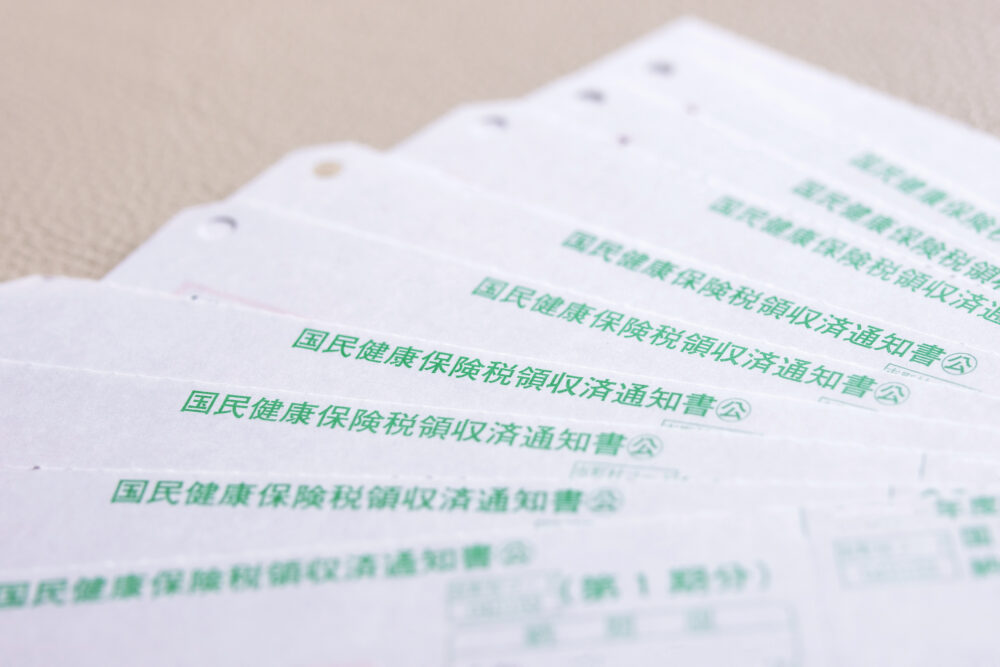 国民健康保険
国民健康保険税領
国民健康保険税領収済通
国民健康保険税領収済通知書㊡
国民健康保険税領収済通知書㊡
国民健康保険税領収済通知書㊡
国民健康保険税領収済通知書㊡
国民健康保険税領収済通知書㊡
国民健康保険税領収済通知書㊡
(第1期分)
年度
国